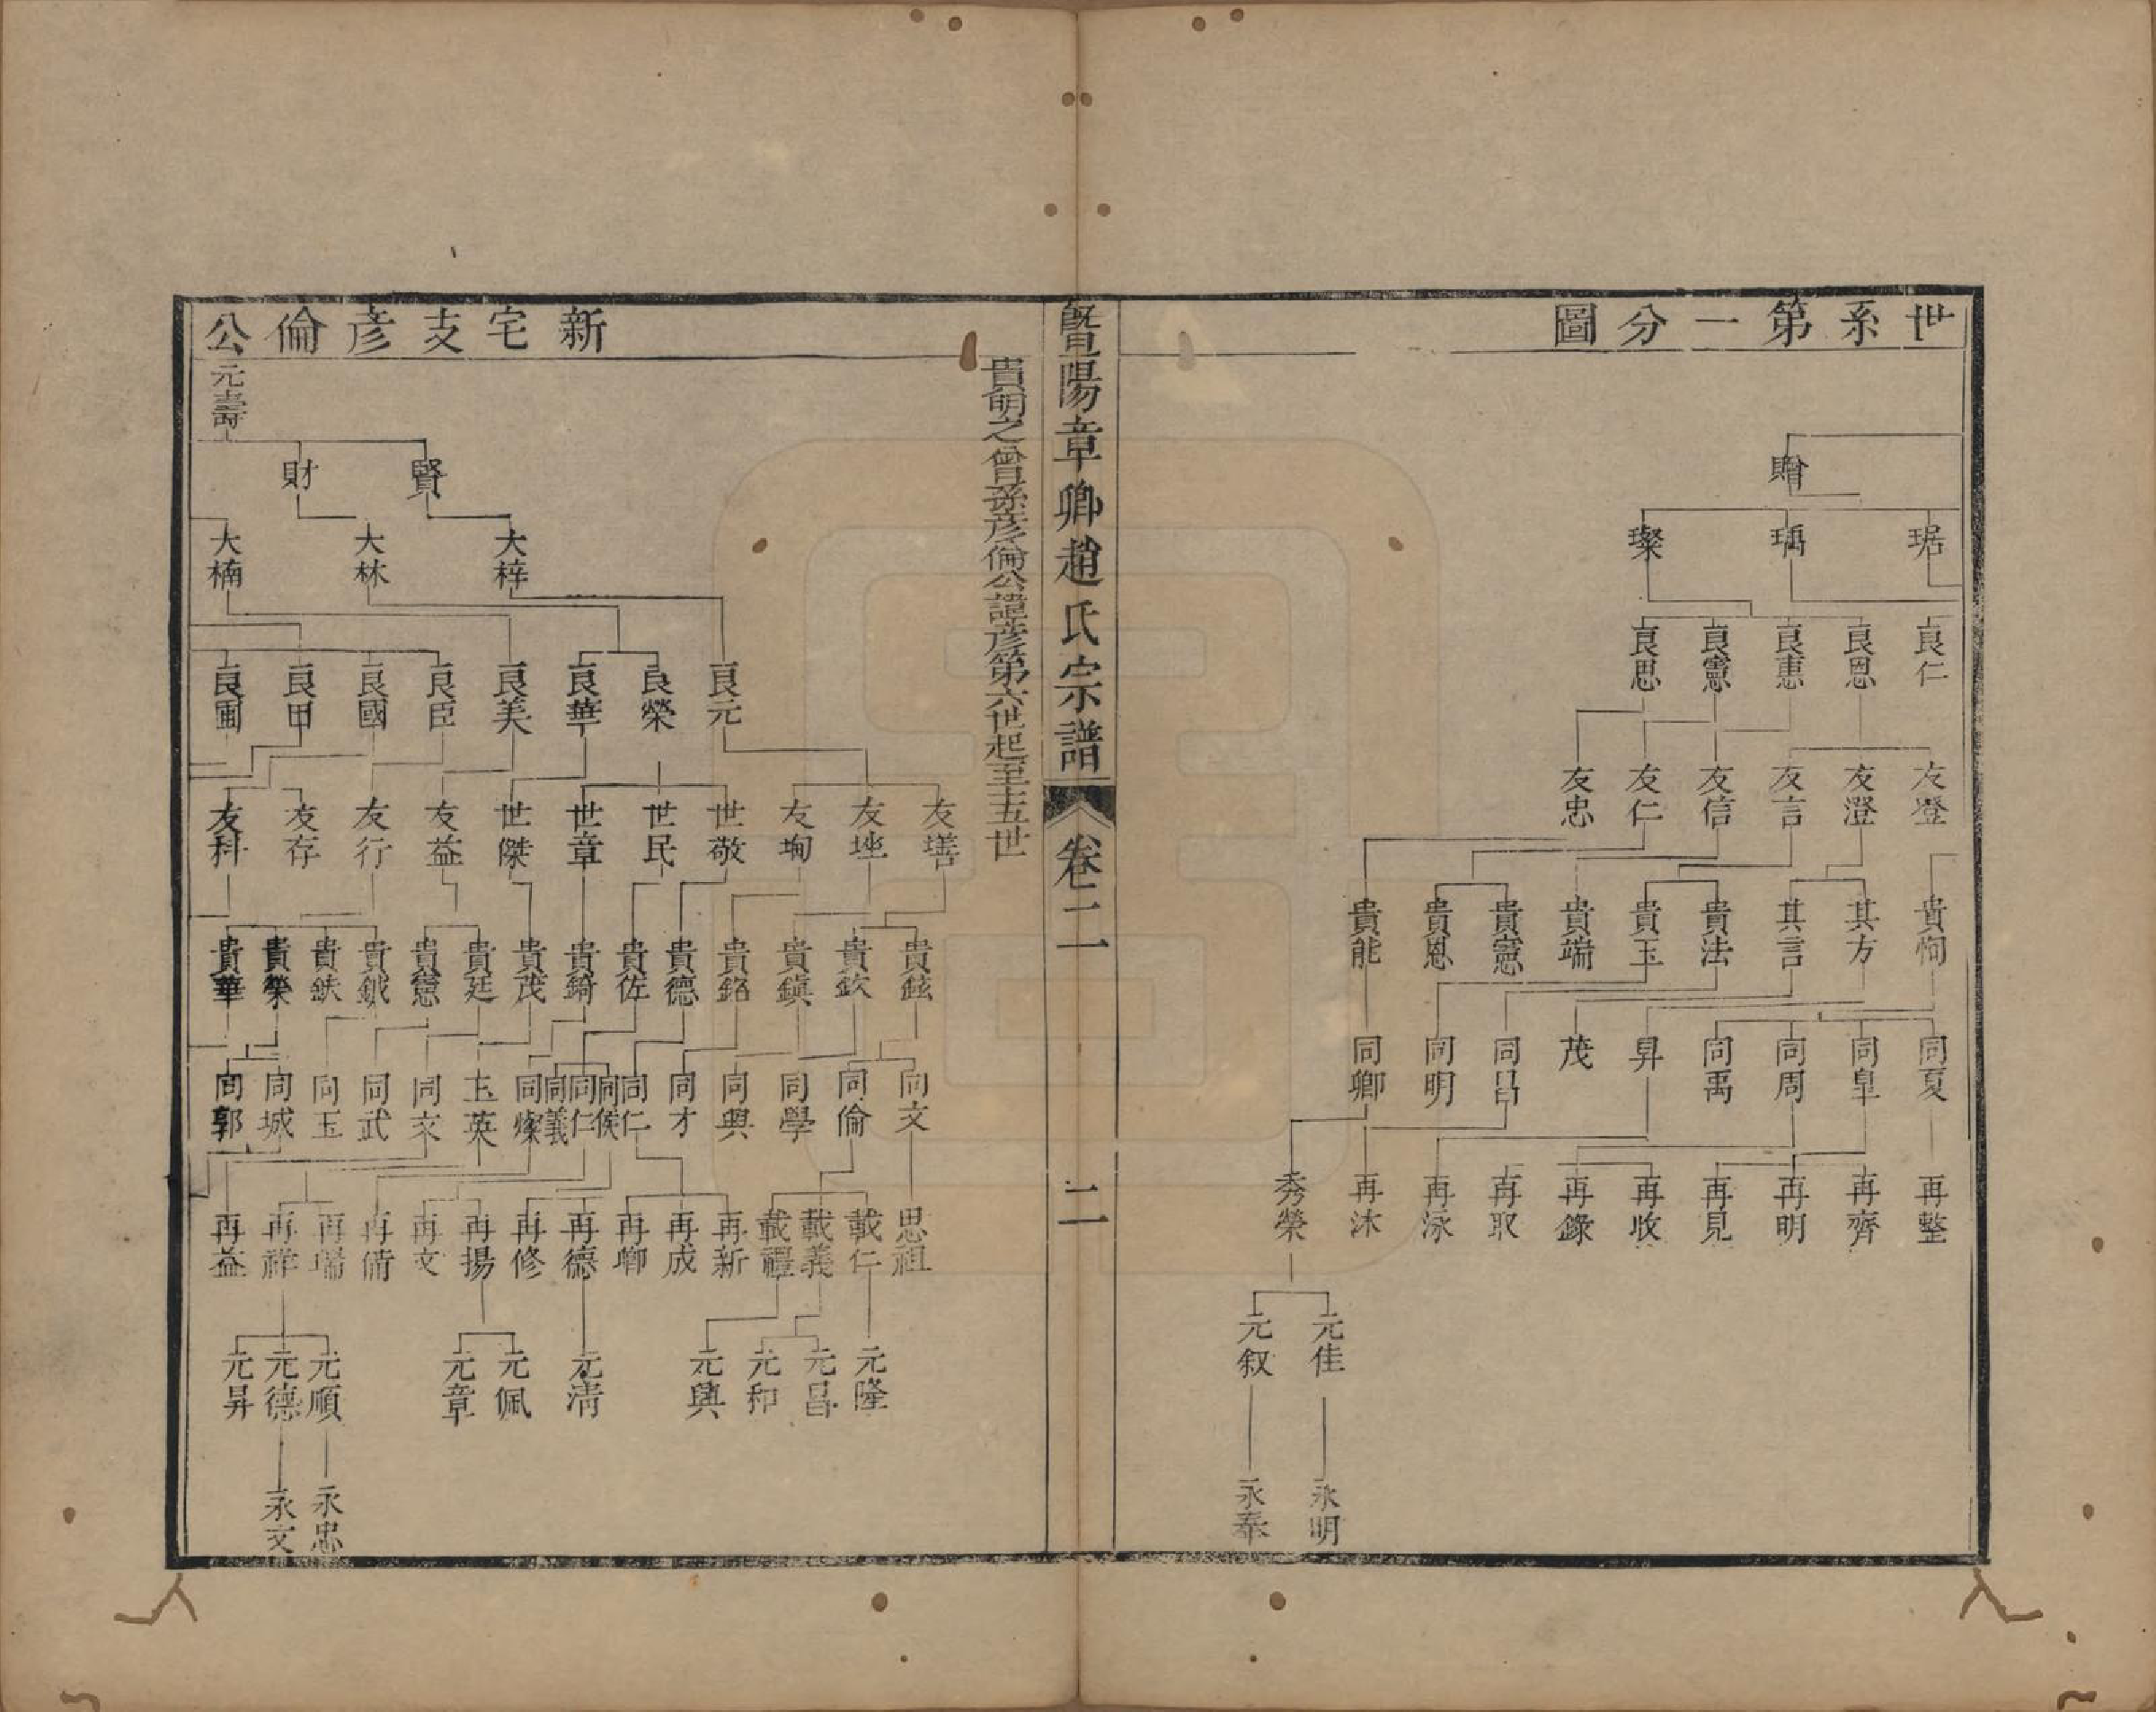 世系第一分圖
贈
琚 瑀 璨
良仁 良恩 良惠 良憲 良思
友登 友澄 友言 友信 友仁 友忠
貴恂 其方 其言 貴法 貴玉 貴端 貴憲 貴恩 貴能
同夏 同皐 同周 同禹 昇 茂 同昌 同明 同卿
再整 再齊 再明 再見 再收 再錄 再取 再泳 再沐 秀榮
元佳 元叙
永明 永泰
暨陽章卿趙氏宗譜 卷二 二
貴明之曾孫彥倫公諱彥第六世起至十五世
新宅支彥倫公
元壽
賢 財
大梓 大林 大楠
良元 良榮 良華 良美 良臣 良國 良甲 良圃
友墡 友㘴 友垧 世敬 世民 世章 世傑 友益 友行 友存 友科
貴鉉 貴欽 貴鎮 貴銘 貴德 貴佐 貴錡 貴茂 貴廷 貴憲 貴鉞 貴鈇 貴榮 貴華
同文 同倫 同學 同興 同才 同仁 同候 同仁 同義 同燦 玉英 同文 同武 同玉 同城 同郭
思祖 載仁 載義 載禮 再新 再成 再卿 再德 再修 再揚 再文 再倩 再瑞 再祥 再益
元隆 元昌 元和 元興 元清 元佩 元章 元順 元德 元昇
永忠 永文